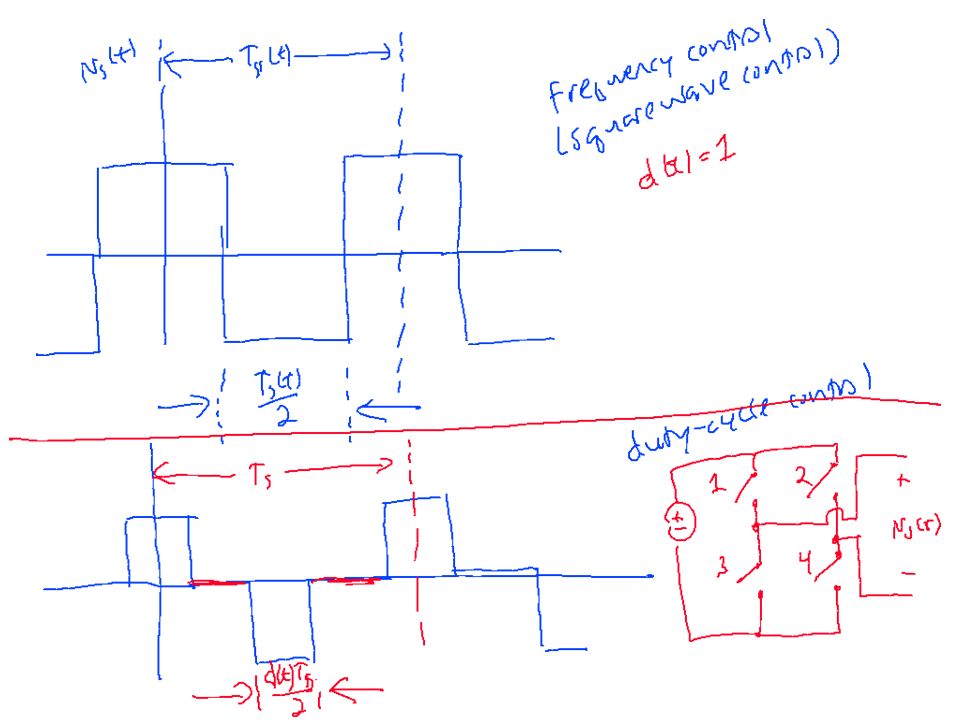 Ns(t)
Ts(t)
Frequency control
(square wave control)
d(t)=1
Ts(t)
2
duty-cycle control
Ts
1
2
+
±
Ns(t)
3
4
-
d(t)Ts
2